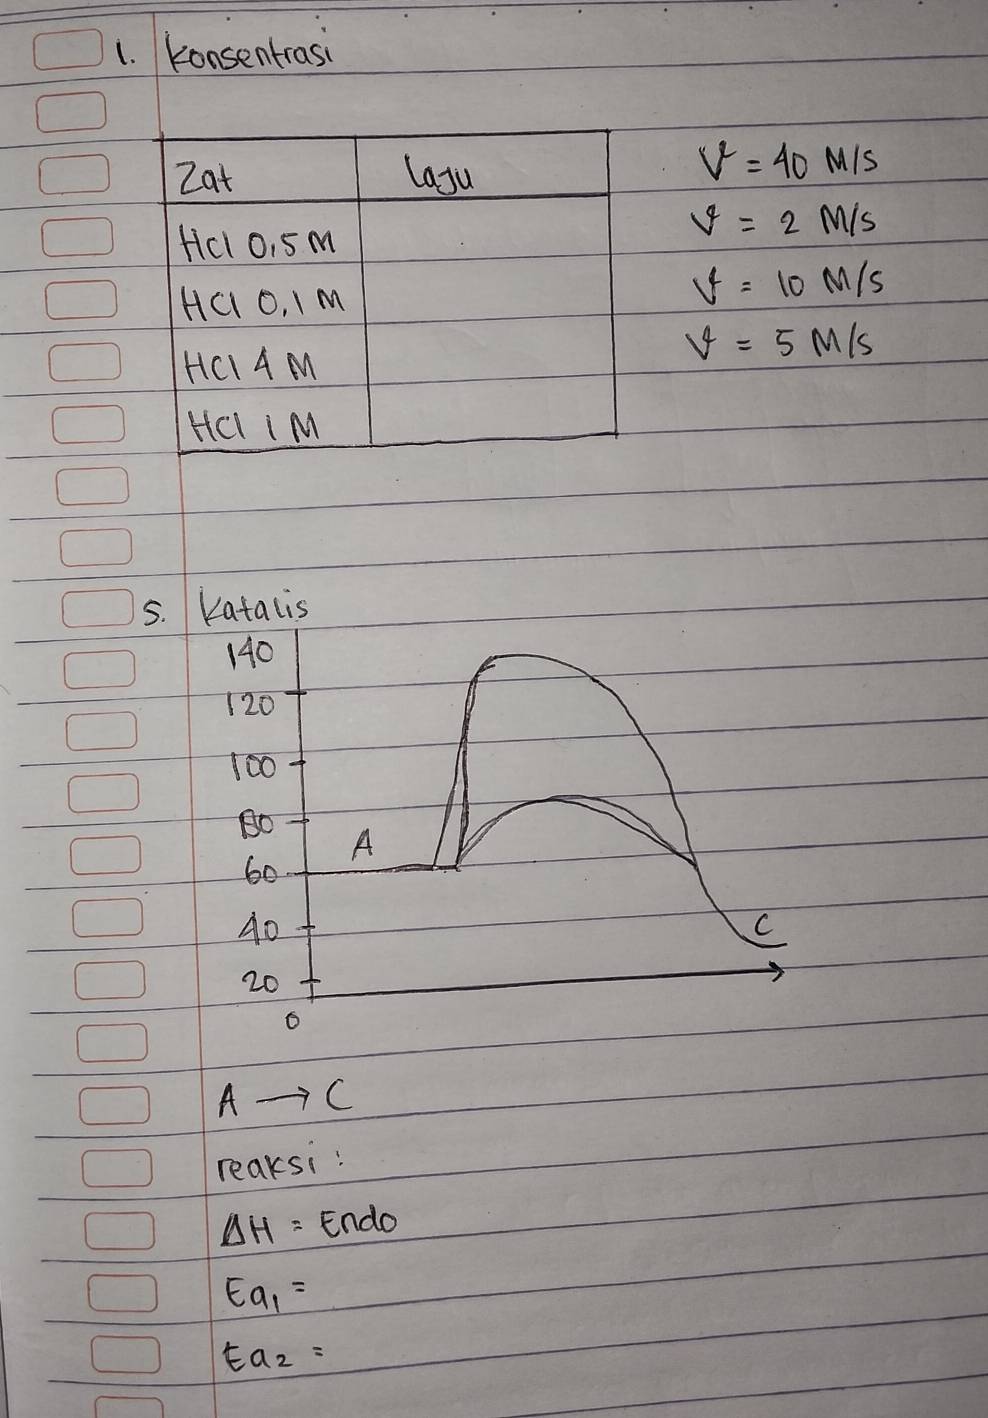 1. Konsentrasi
Zat Laju
HCl 0,5 M
HCl 0,1 M
HCl 4 M
HCl 1 M
V = 40 M/S
V = 2 M/S
V = 10 M/S
V = 5 M/S
5. Katalis
140
120
100
80
60
40
20
0
A
C
A → C
reaksi :
ΔH = Endo
Ea₁ =
Ea₂ =